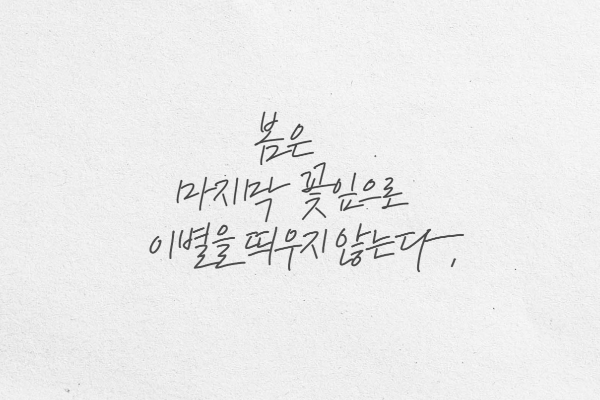 봄은
마지막 꽃잎으로
이별을 띄우지 않는다,